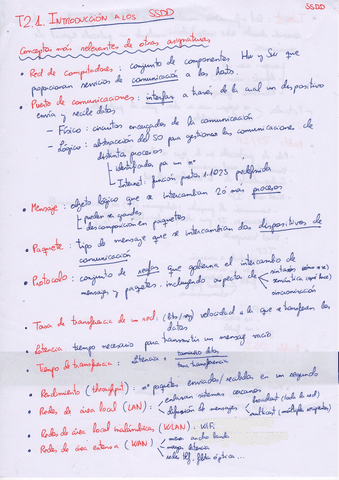 SSDD
T2.1. INTRODUCCIÓN A LOS SSDD
Conceptos más relevantes de otras asignaturas
• Red de computadores: conjunto de componentes Hw y Sw que
proporcionan servicios de comunicación a los datos.
• Puerto de comunicaciones: interfaz a través de la cual un dispositivo
envía y recibe datos
– Físico: circuitos encargados de la comunicación
– Lógico: abstracción del SO para gestionar las comunicaciones de
distintos procesos
identificados por un nº
Internet: función puerto 1-1023 predefinida
• Mensaje: objeto lógico que se intercambian 2 ó más procesos
pueden ser grandes
descomposición en paquetes
• Paquete: tipo de mensaje que se intercambian dos dispositivos de
comunicación
• Protocolo: conjunto de reglas que gobierna el intercambio de
mensajes y paquetes, incluyendo aspectos de sintaxis
semántica
sincronización
• Tasa de transferencia de una red: (bits/seg) velocidad a la que se transfieren los
datos
• Latencia tiempo necesario para transmitir un mensaje vacío
• Tiempo de transferencia: latencia + tamaño datos
tasa transferencia
• Rendimiento (throughput): nº paquetes enviados/recibidos en un segundo
• Redes de área local (LAN): enlazan sistemas cercanos
difusión de mensajes broadcast (toda la red)
multicast (múltiples receptores)
• Redes de área local inalámbricas (WLAN): WiFi
• Redes de área extensa (WAN) menor ancho banda
mayor latencia
redes tlf, fibra óptica...